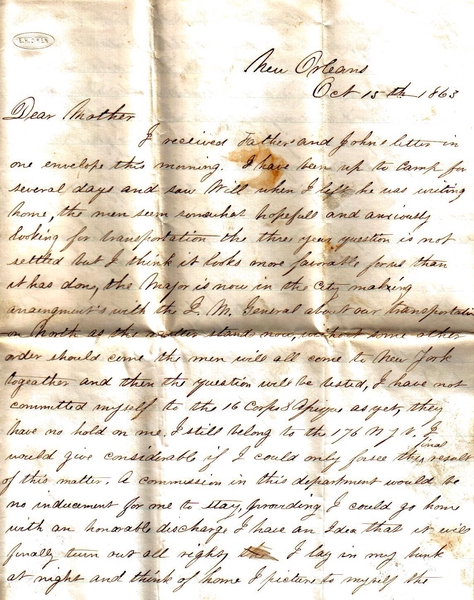 New Orleans
Oct 15th 1863
Dear Mother
I received Fathers and Johns letter in
one envelope this morning. I have been up to camp for
several days and saw Will when I left he was writing
home, the men seem somewhat hopefull and anxiously
looking for transportation the three year question is not
settled but I think it looks more favorable for us than
it has done, the Major is now in the City making
arraingment's with the Q. M. General about our transportation
on North as the matter stand now, without some other
order should come the men will all come to New York
togeather and then the question will be tested, I have not
committed myself to the 16 Corps d Afrique as yet, they
have no hold on me, I still belong to the 176 N Y V. I
would give considerable if I could only forsee the final result
of this matter. A commission in this department would be
no inducement for me to stay, providing I could go home
with an honorable discharge I have an Idea that it will
finally turn out all right, I lay in my bunk
at night and think of home I picture to myself the